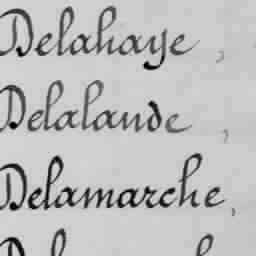 Delahaye ,
Delalande ,
Delamarche,